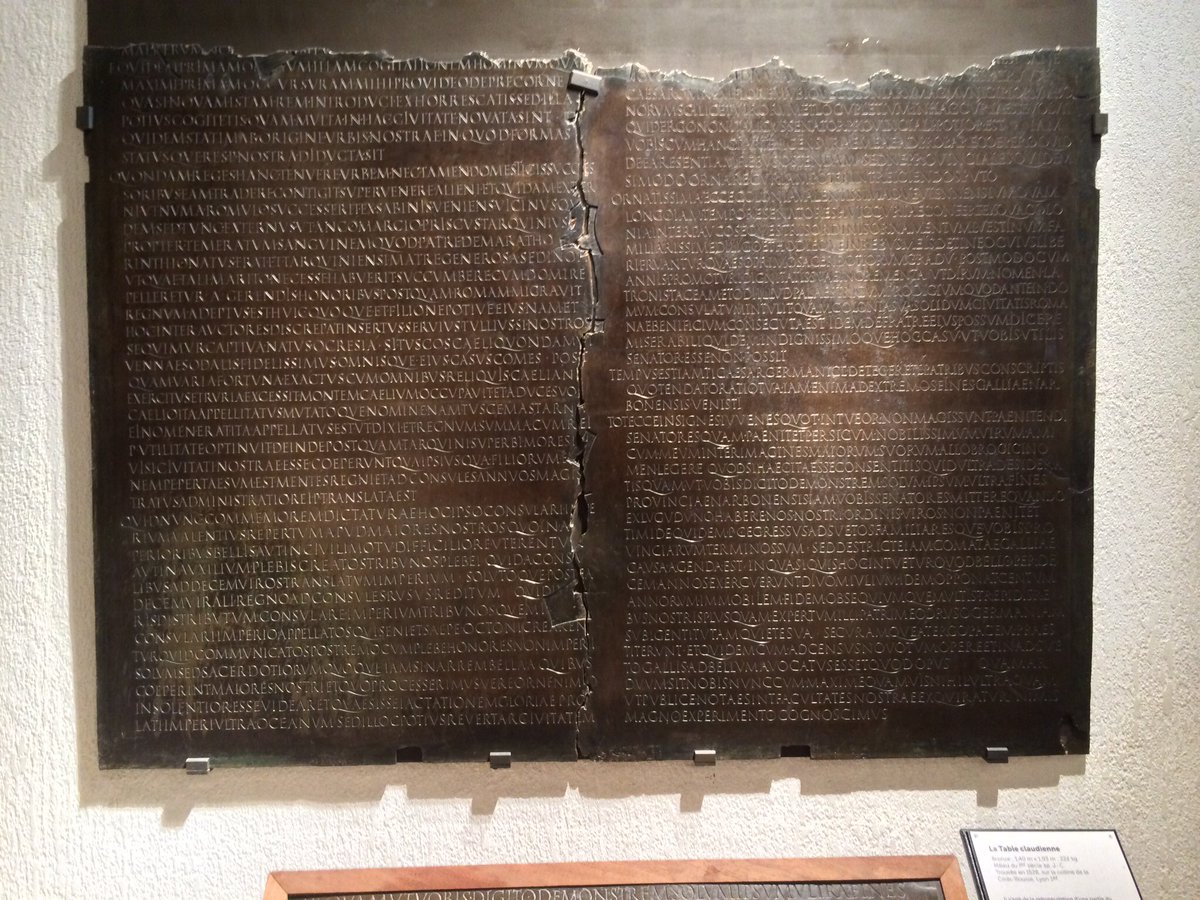 EQVIDEM PRIMAM OMNIVM ILLAM COGITATIONEM HOMINVM QVAM
MAXIME PRIMAM OCCVRSVRAM MIHI PROVIDEO DEPRECOR NE
QVASI NOVAM ISTAM REM INTRODVCI EXHORRESCATIS SED ILLA
POTIVS COGITETIS QVAM MVLTA IN HAC CIVITATE NOVATA SINT
QVIDEM STATIM AB ORIGINE VRBIS NOSTRAE IN QVOD FORMAS
STATVSQVE RES P NOSTRA DIDVCTA SIT
QVONDAM REGES HANC TENVERE VRBEM NEC TAMEN DOMESTICIS SVCCES
SORIBVS EAM TRADERE CONTIGIT SVPERVENERE ALIENI ET QVIDAM EXTER
NI VT NVMA ROMVLO SVCCESSERIT EX SABINIS VENIENS VICINVS QVI
DEM SED TVNC EXTERNVS VT ANCO MARCIO PRISCVS TARQVINIVS
PROPTER TEMERATVM SANGVINEM QVOD PATRE DEMARATHO
RINTHIO NATVS ERAT ET TARQVINIENSI MATRE GENEROSA SED INOPI
VT QVAE TALI MARITO NECESSE HABVERIT SVCCVMBERE CVM DOMI RE
PELLERETVR A GERENDIS HONORIBVS POSTQVAM ROMAM MIGRAVIT
REGNVM ADEPTVS EST HVIC QVOQVE ET FILIO NEPOTIVE EIVS NAM ET
HOC INTER AVCTORES DISCREPAT INSERTVS SERVIVS TVLLIVS SI NOSTROS
SEQVIMVR CAPTIVA NATVS OCRESIA SI TVSCOS CAELI QVONDAM
VENNAE SODALIS FIDELISSIMVS OMNISQVE EIVS CASVS COMES POST
QVAM VARIA FORTVNA EXACTVS CVM OMNIBVS RELIQVIS CAELIANI
EXERCITVS ETRVRIA EXCESSIT MONTEM CAELIVM OCCVPAVIT ET A DVCE SVO
CAELIO ITA APPELLITATVS MVTATOQVE NOMINE NAM TVSCE MASTARNA
EI NOMEN ERAT ITA APPELLATVS EST VT DIXI ET REGNVM SVMMA CVM REI
P VTILITATE OPTINVIT DEINDE POSTQVAM TARQVINI SVPERBI MORES
VISI CIVITATI NOSTRAE ESSE COEPERVNT QVA IPSIVS QVA FILIORVM EI
NEMPE PERTAESVM EST MENTES REGNI ET AD CONSVLES ANNVOS MAGIS
TRATVS ADMINISTRATIO REI P TRANSLATA EST
QVID NVNC COMMEMOREM DICTATVRAE HOC IPSO CONSVLARI IMPE
RIVM VALENTIVS REPERTVM APVD MAIORES NOSTROS QVO IN AS
PERIORIBVS BELLIS AVT IN CIVILI MOTV DIFFICILIORE VTERENTVR
AVT IN AVXILIVM PLEBIS CREATOS TRIBVNOS PLEBEI QVID A CONSV
LIBVS AD DECEMVIROS TRANSLATVM IMPERIVM SOLVTOQVE POSTEA
DECEMVIRALI REGNO AD CONSVLES RVSVS REDITVM
RIS DISTRIBVTVM CONSVLARE IMPERIVM TRIBVNOSQVE MIL
CONSVLARI IMPERIO APPELLATOS QVI SENI ET SAEPE OCTONI CREAREN
TVR QVID COMMVNICATOS POSTREMO CVM PLEBE HONORES NON IMPERI
SOLVM SED SACERDOTIORVM QVOQVE IAM SI NARREM BELLA A QVIBVS
COEPERINT MAIORES NOSTRI ET QVO PROCESSERIMVS VEREOR NE NIMIO
INSOLENTIOR ESSE VIDEAR ET QVAESISSE IACTATIONEM GLORIAE PRO
LATI IMPERI VLTRA OCEANVM SED ILLOC POTIVS REVERTAR CIVITATEM
NORVM
QVID ERGO NON ITALICVS SENATOR PROVINCIALI POTIOR EST IAM
VOBIS CVM HANC PARTEM CENSVRAE MEAE ADPROBARE COEPERO QVID
DE EA RE SENTIAM REBVS OSTENDAM SED NE PROVINCIALES QVIDEM
SI MODO ORNARE CVRIAM POTERINT REICIENDOS PVTO
ORNATISSIMA ECCE COLONIA VALENTISSIMAQVE VIENNENSIVM QVAM
LONGO IAM TEMPORE SENATORES HVIC CVRIAE CONFERT EX QVA COLO
NIA INTER PAVCOS EQVESTRIS ORDINIS ORNAMENTVM L VESTINVM FA
MILIARISSIME DILIGO ET HODIEQVE IN REBVS MEIS DETINEO CVIVS LIBE
RI FRVANTVR QVAESO PRIMO SACERDOTIORVM GRADV POST MODO CVM
ANNIS PROMOTVRI DIGNITATIS SVAE INCREMENTA VT DIRVM NOMEN LA
TRONIS TACEAM ET ODI ILLVD PALAESTRICVM PRODIGIVM QVOD ANTE IN DO
MVM CONSVLATVM INTVLIT QVAM COLONIA SVA SOLIDVM CIVITATIS ROMA
NAE BENIFICIVM CONSECVTA EST IDEM DE FRATRE EIVS POSSVM DICERE
MISERABILI QVIDEM INDIGNISSIMOQVE HOC CASV VT VOBIS VTILIS
SENATOR ESSE NON POSSIT
TEMPVS EST IAM TI CAESAR GERMANICE DETEGERE TE PATRIBVS CONSCRIPTIS
QVO TENDAT ORATIO TVA IAM ENIM AD EXTREMOS FINES GALLIAE NAR
BONENSIS VENISTI
TOT ECCE INSIGNES IVVENES QVOT INTVEOR NON MAGIS SVNT PAENITENDI
SENATORES QVAM PAENITET PERSICVM NOBILISSIMVM VIRVM AMI
CVM MEVM INTER IMAGINES MAIORVM SVORVM ALLOBROGICI NO
MEN LEGERE QVOD SI HAEC ITA ESSE CONSENTITIS QVID VLTRA DESIDERA
TIS QVAM VT VOBIS DIGITO DEMONSTREM SOLVM IPSVM VLTRA FINES
PROVINCIAE NARBONENSIS IAM VOBIS SENATORES MITTERE QVANDO
EX LVGVDVNO HABERE NOS NOSTRI ORDINIS VIROS NON PAENITET
TIMIDE QVIDEM P C EGRESSVS ADSVETOS FAMILIARESQVE VOBIS PRO
VINCIARVM TERMINOS SVM SED DESTRICTE IAM COMATAE GALLIAE
CAVSA AGENDA EST IN QVA SI QVIS HOC INTVETVR QVOD BELLO PER DE
CEM ANNOS EXERCVERVNT DIVOM IVLIVM IDEM OPPONAT CENTVM
ANNORVM IMMOBILEM FIDEM OBSEQVIVMQVE MVLTIS TREPIDIS RE
BVS NOSTRIS PLVSQVAM EXPERTVM ILLI PATRI MEO DRVSO GERMANIAM
SVBIGENTI TVTAM QVIETE SVA SECVRAMQVE A TERGO PACEM PRAES
TITERVNT ET QVIDEM CVM AD CENSVS NOVO TVM OPERE ET INADSVE
TO GALLIS AD BELLVM AVOCATVS ESSET QVOD OPVS QVAM AR
DVVM SIT NOBIS NVNC CVM MAXIME QVAMVIS NIHIL VLTRA QVAM
VT PVBLICE NOTAE SINT FACVLTATES NOSTRAE EXQVIRATVR NIMIS
MAGNO EXPERIMENTO COGNOSCIMVS
QVAM VT VOBIS DIGITO DEMONSTREM SOLVM IPSVM VLTRA FINES
La Table claudienne
Bronze : 1,40 m x 1,93 m ; 222 kg
Milieu du Ier siècle ap. J.-C.
Trouvée en 1528, sur la colline de la
Croix-Rousse, Lyon 1er